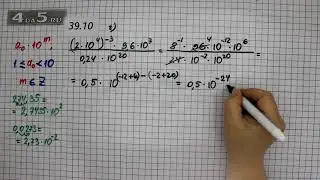 4DA5.RU
39.10 г)
a₀·10ᵐ,
1 ≤ a₀ < 10
m ∈ Z
274,35 =
= 2,7435·10²
0,0273 =
= 2,73·10⁻²
(2·10⁴)⁻³ · 96·10⁷ / 0,24·10²⁰ = 8⁻¹·96·10⁻¹²·10⁶ / 24·10⁻²·10²⁰ =
= 0,5·10⁽⁻¹²⁺⁶⁾⁻⁽⁻²⁺²⁰⁾ = 0,5·10⁻²⁴